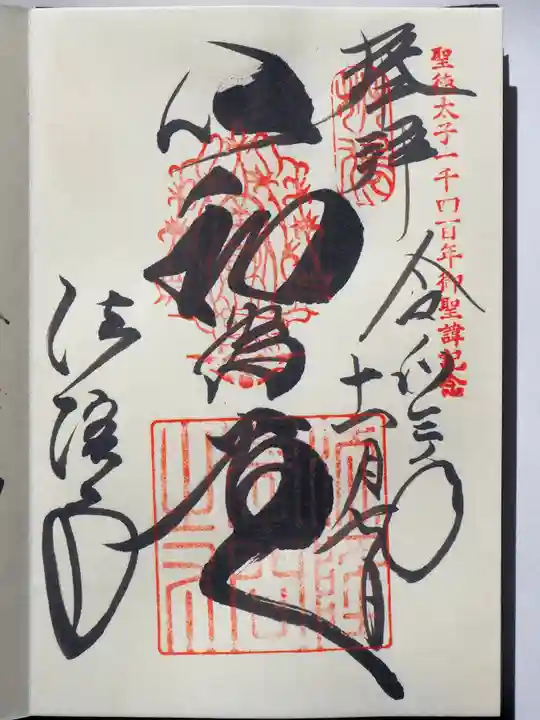 聖徳太子一千四百年御聖諱記念
奉拝
令和三年
十一月七日
以和為貴
法隆寺